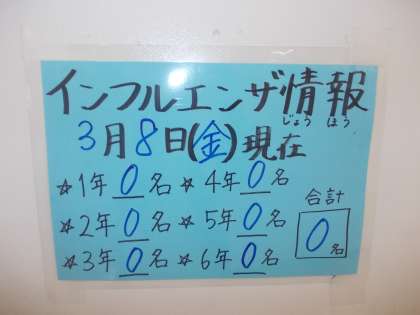 インフルエンザ情報
じょうほう
3月8日(金)現在
☆1年 0名 ☆4年 0名
☆2年 0名 ☆5年 0名
☆3年 0名 ☆6年 0名
合計
0名